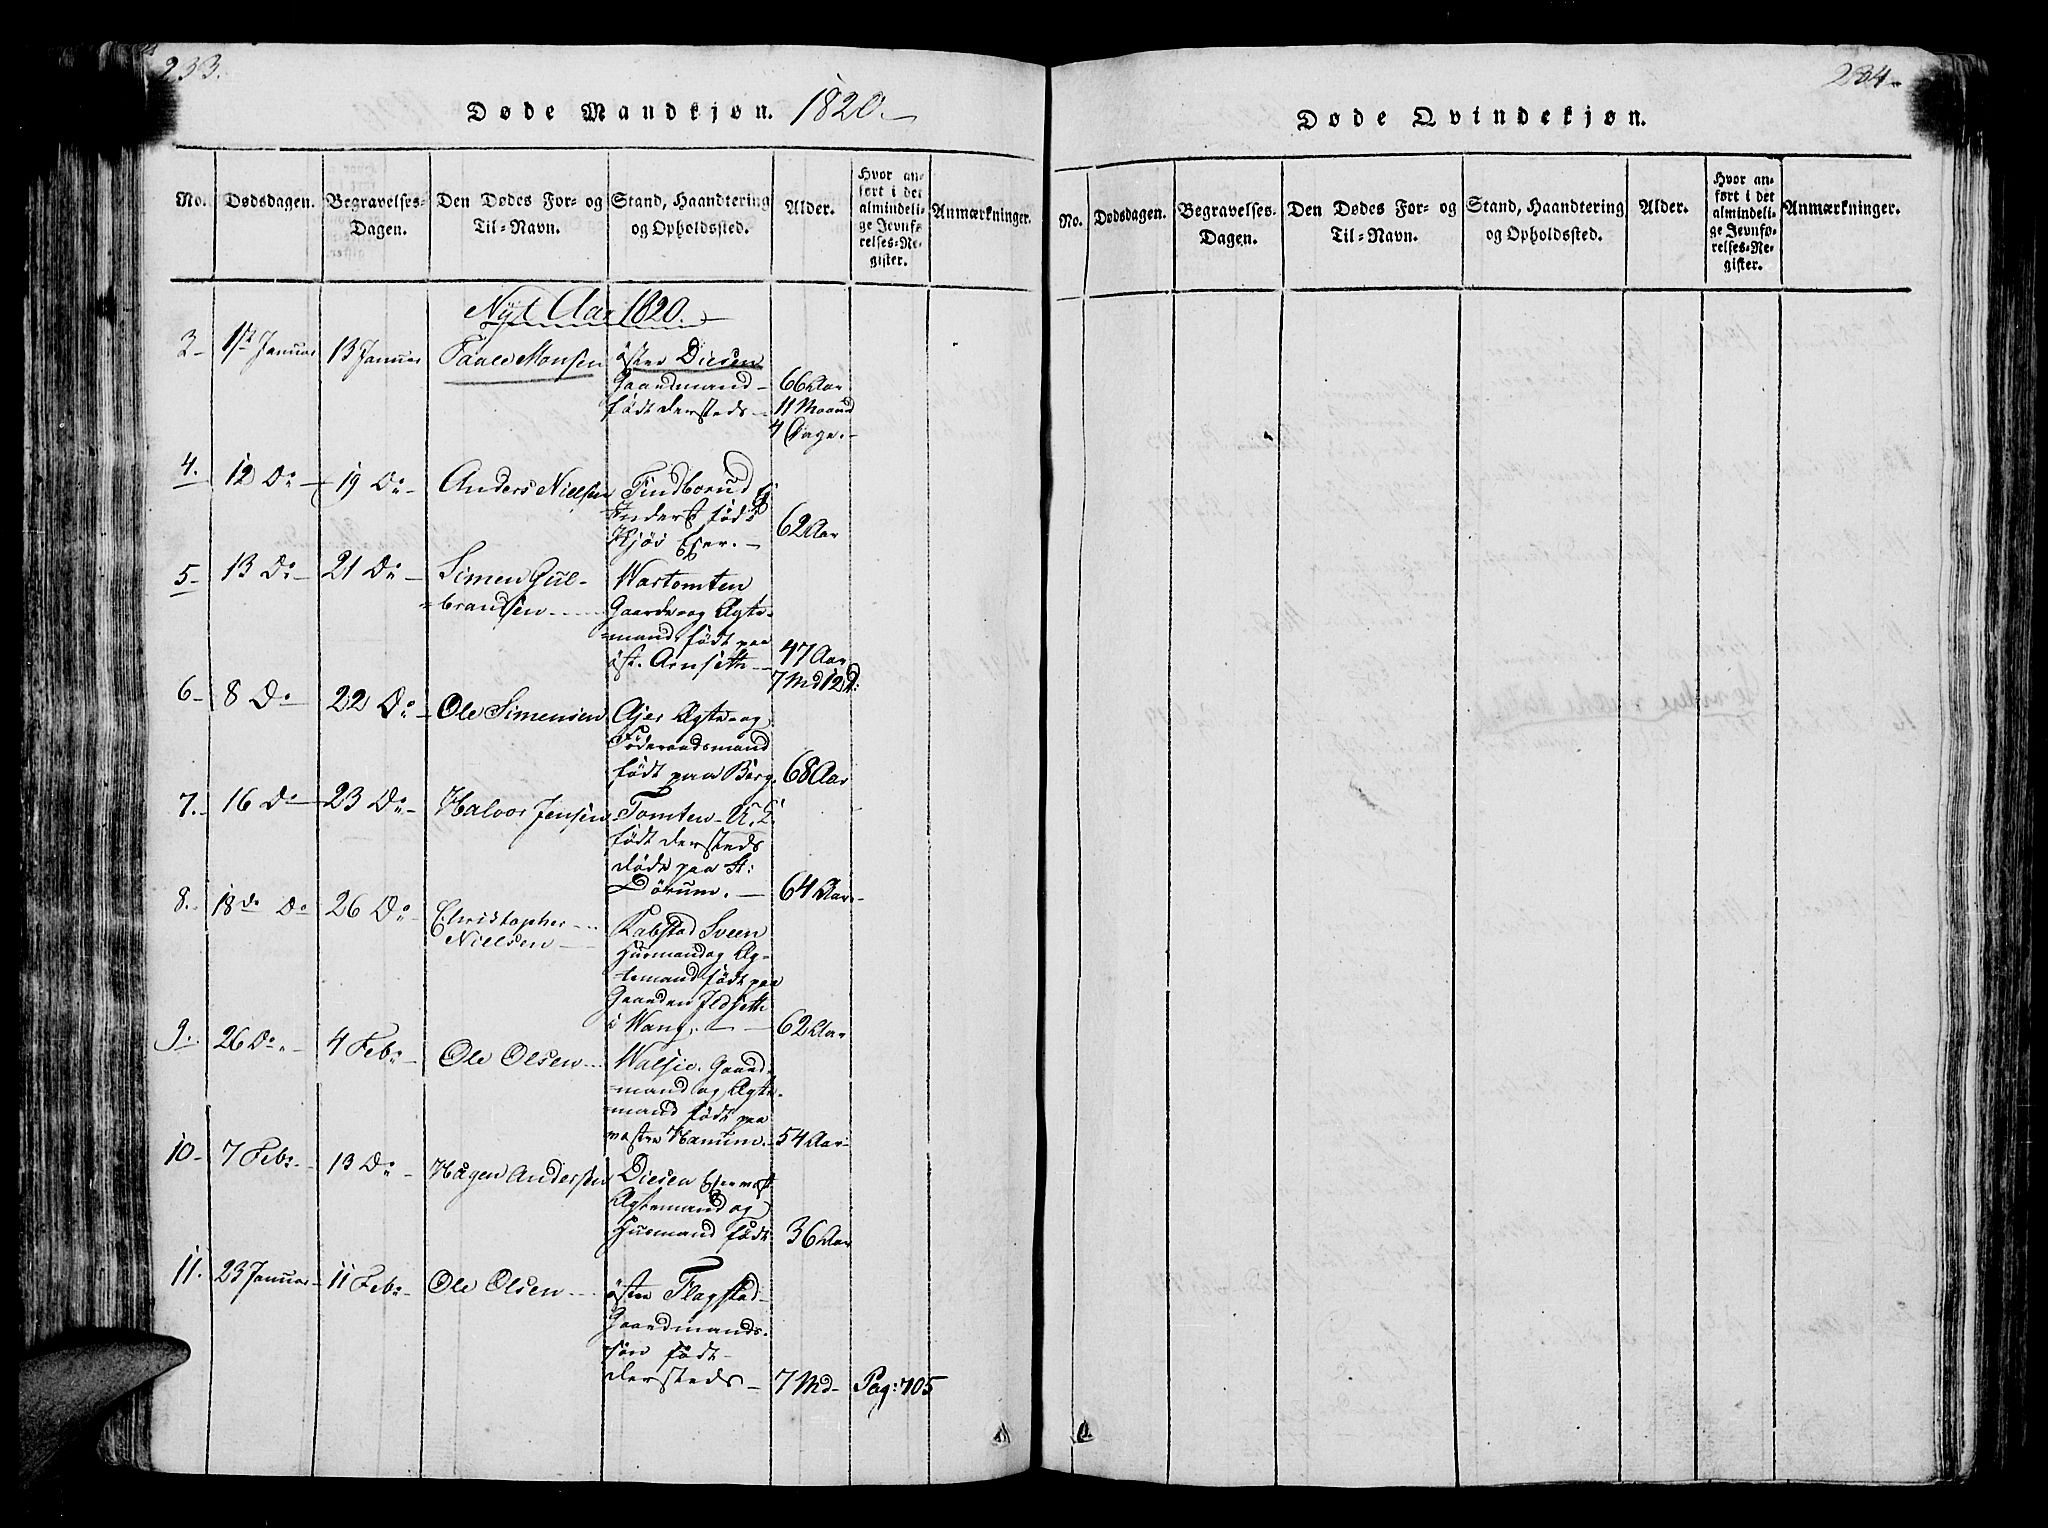 233.
Døde Mandkjøn. 1820.
No.
Dødsdagen.
Begravelses-
Dagen.
Den Dødes For- og
Til-Navn.
Stand, Haandtering
og Opholdssted.
Alder.
Hvor an-
ført i det
almindeli-
ge Jevnfø-
relses-Re-
gister.
Anmærkninger.
Nyt Aar 1820.
3 1ste Januar 13 Januar Paale Monsen östre Diesen
Gaardmand 66 Aar
födt dersteds 11 Maaned
4 Dage.
4. 12 Do 19 Do Anders Nielsen Tindborud
Inderst födt
Kjös Eier. 62 Aar
5 13 Do 21 Do Simen Gul-
bransen
Wartomten
Gaard- og Ægte-
mand födt paa
öst. Arnseth 47 Aar
7 Md 12 D:
6 8 Do 22 Do Ole Simensen Ajer Ægte- og
Föderaadsmand
födt paa Berg. 68 Aar
7. 16 Do 23 Do Halvor Jensen Tomten
födt dersteds
döde paa St:
64 Aar
8. 18de Do 26 Do Christopher
Nielsen
Kabstad Sveen
Husmand og Æg-
temand födt paa
Gaarden Ildseth
i Wang. 62 Aar
9. 26 Do 4 Febr Ole Olsen Walsie. Gaard-
mand og Ægte-
mand födt paa
vestre Hanum. 54 Aar
10 7 Febr. 13 Do Hågen Andersen Diesen Eier
Ægtemand og
Husmand födt 36 Aar
11. 23 Januar 11 Febr Ole Olsen östre Flagstad
Gaardmands-
sön födt
dersteds 7 Md Pag: 105
234
Døde Qvindekjøn.
No.
Dødsdagen.
Begravelses-
Dagen.
Den Dødes For- og
Til-Navn.
Stand, Haandtering
og Opholdssted.
Alder.
Hvor an-
ført i det
almindeli-
ge Jevnfø-
relses-Re-
gister.
Anmærkninger.